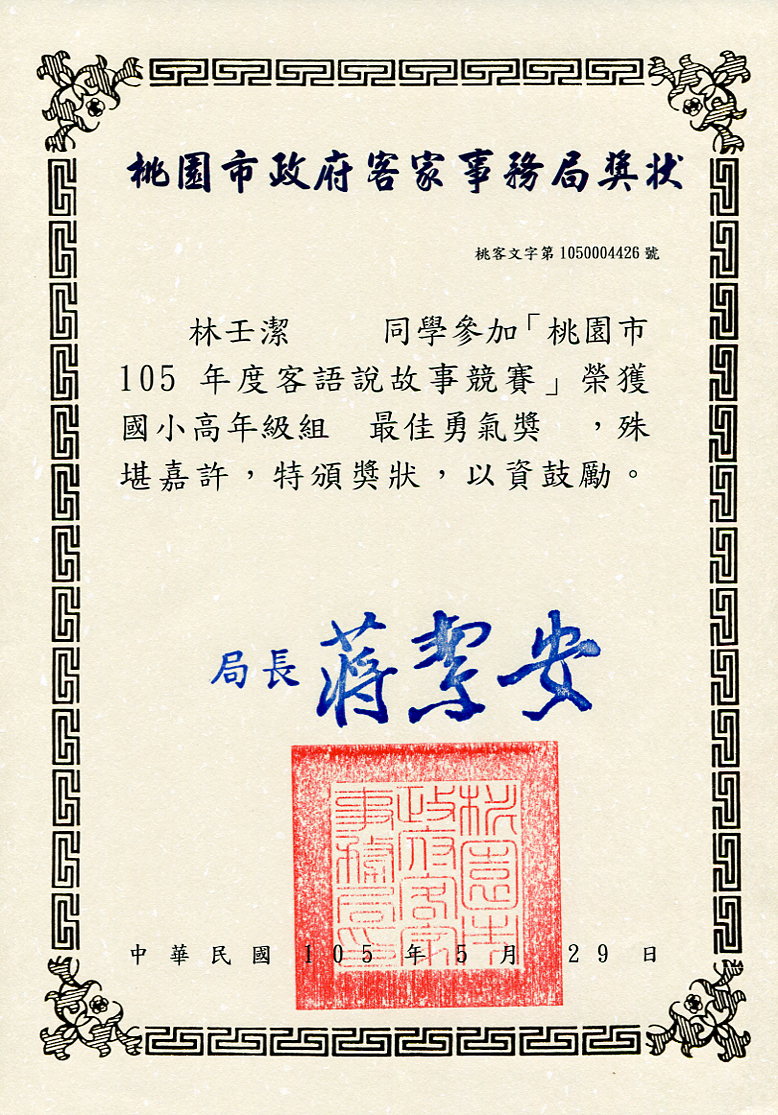 桃園市政府客家事務局獎狀
桃客文字第1050004426號
林壬潔 同學參加「桃園市
105 年度客語說故事競賽」榮獲
國小高年級組 最佳勇氣獎 ,殊
堪嘉許,特頒獎狀,以資鼓勵。
局長 蔣絜安
桃園市
政府客家
事務局印
中華民國 105 年 5 月 29 日